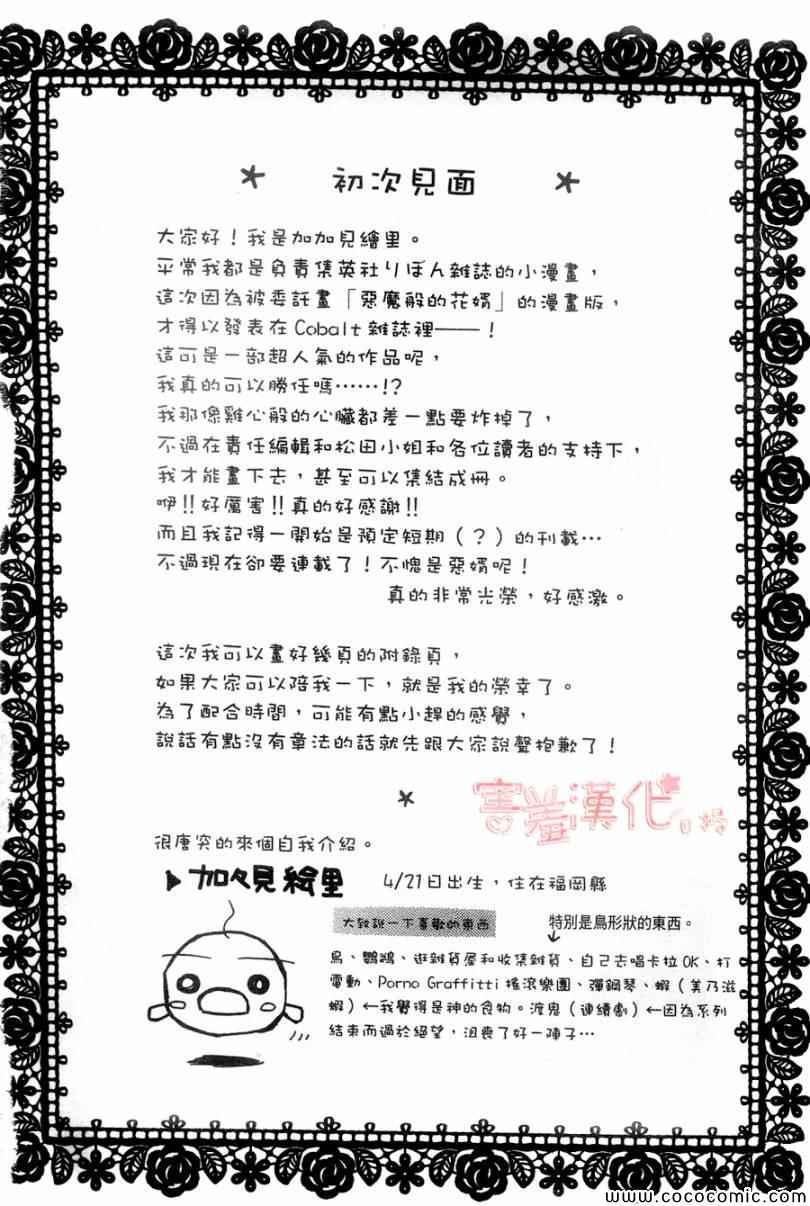 ＊ 初次見面 ＊
大家好！我是加加見繪里。
平常我都是負責集英社りぼん雜誌的小漫畫，
這次因為被委託畫「惡魔般的花婿」的漫畫版，
才得以發表在Cobalt雜誌裡——！
這可是一部超人氣的作品呢，
我真的可以勝任嗎……!?
我那像雞心般的心臟都差一點要炸掉了，
不過在責任編輯和松田小姐和各位讀者的支持下，
我才能畫下去，甚至可以集結成冊。
咿!!好厲害!!真的好感謝!!
而且我記得一開始是預定短期（？）的刊載…
不過現在卻要連載了！不愧是惡婿呢！
真的非常光榮，好感激。
這次我可以畫好幾頁的附錄頁，
如果大家可以陪我一下，就是我的榮幸了。
為了配合時間，可能有點小趕的感覺，
說話有點沒有章法的話就先跟大家說聲抱歉了！
＊
害羞漢化
很唐突的來個自我介紹。
▶加々見絵里 4/21日出生，住在福岡縣
大致說一下喜歡的東西 特別是鳥形狀的東西。
鳥、鸚鵡、逛雜貨屋和收集雜貨、自己去唱卡拉OK、打
電動、Porno Graffitti搖滾樂團、彈鋼琴、蝦（美乃滋
蝦）←我覺得是神的食物。渡鬼（連續劇）←因為系列
結束而過於絕望，沮喪了好一陣子…
www.cococomic.com